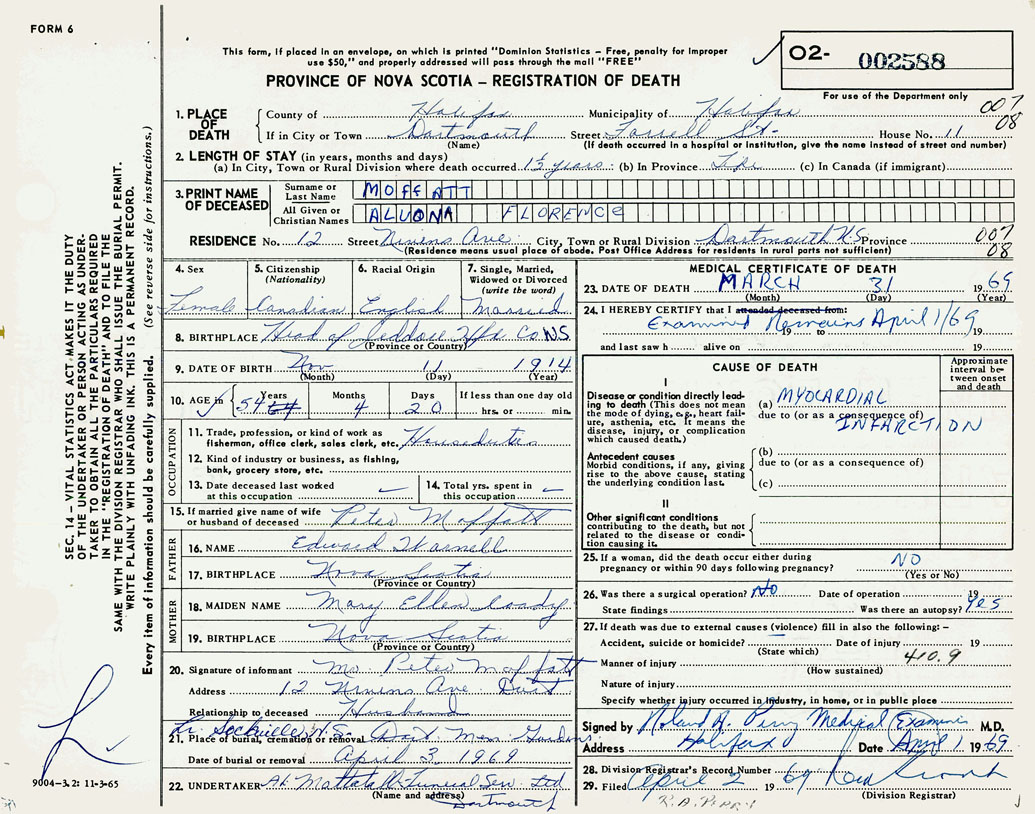 FORM 6
This form, if placed in an envelope, on which is printed "Dominion Statistics – Free, penalty for improper
use $50," and properly addressed will pass through the mail "FREE"
PROVINCE OF NOVA SCOTIA – REGISTRATION OF DEATH
O2- 002588
For use of the Department only
007
08
1. PLACE OF DEATH
County of Halifax Municipality of Halifax
If in City or Town Dartmouth Street Farrell St. House No. 11
(Name) (If death occurred in a hospital or Institution, give the name instead of street and number)
2. LENGTH OF STAY (in years, months and days)
(a) In City, Town or Rural Division where death occurred 1½ years (b) In Province Life (c) In Canada (if immigrant)
3. PRINT NAME OF DECEASED
Surname or Last Name MOFFATT
All Given or Christian Names ALVONA FLORENCE
RESIDENCE No. 12 Street Ave City, Town or Rural Division Dartmouth N.S Province
(Residence means usual place of abode. Post Office Address for residents in rural parts not sufficient)
007
08
4. Sex Female
5. Citizenship (Nationality) Canadian
6. Racial Origin English
7. Single, Married, Widowed or Divorced (write the word) Married
8. BIRTHPLACE Head of Jeddore Hfx Co NS
(Province or Country)
9. DATE OF BIRTH Nov 11 1914
(Month) (Day) (Year)
10. AGE in Years 54 Months 4 Days 20 If less than one day old hrs. or min.
OCCUPATION
11. Trade, profession, or kind of work as fisherman, office clerk, sales clerk, etc. Housedutes
12. Kind of industry or business, as fishing, bank, grocery store, etc.
13. Date deceased last worked at this occupation
14. Total yrs. spent in this occupation
15. If married give name of wife or husband of deceased Peter Moffatt
FATHER
16. NAME Edward
17. BIRTHPLACE Nova Scotia
(Province or Country)
MOTHER
18. MAIDEN NAME Mary Ellen
19. BIRTHPLACE Nova Scotia
(Province or Country)
20. Signature of informant Mr. Peter Moffatt
Address 12 Ave Dart
Relationship to deceased Husband
Lr. Sackville N.S.
21. Place of burial, cremation or removal Dart Mem Gardens
Date of burial or removal April 3, 1969
22. UNDERTAKER Funeral Ser Ltd
(Name and address) Dartmouth
MEDICAL CERTIFICATE OF DEATH
23. DATE OF DEATH MARCH 31 1969
(Month) (Day) (Year)
24. I HEREBY CERTIFY that I attended deceased from:
Examined Remains April 1/69
19 to 19
and last saw h alive on 19
CAUSE OF DEATH
Approximate interval be- tween onset and death
I
Disease or condition directly lead-
ing to death (This does not mean
the mode of dying, e.g., heart fail-
ure, asthenia, etc. It means the
disease, injury, or complication
which caused death.)
(a) MYOCARDIAL
due to (or as a consequence of)
INFARCTION
Antecedent causes
Morbid conditions, if any, giving
rise to the above cause, stating
the underlying condition last.
(b)
due to (or as a consequence of)
(c)
II
Other significant conditions
contributing to the death, but not
related to the disease or condi-
tion causing it.
25. If a woman, did the death occur either during
pregnancy or within 90 days following pregnancy? NO
(Yes or No)
26. Was there a surgical operation? No Date of operation 19
State findings Was there an autopsy? Yes
27. If death was due to external causes (violence) fill in also the following: –
Accident, suicide or homicide? Date of injury 19
(State which)
410.9
Manner of injury
(How sustained)
Nature of injury
Specify whether injury occurred in industry, in home, or in public place
Signed by Roland A. Perry Medical Examiner M.D.
Address Halifax Date April 1 1969
28. Division Registrar's Record Number
29. Filed April 2 19 69
(Division Registrar)
R.A. PERRY
SEC. 14 – VITAL STATISTICS ACT MAKES IT THE DUTY
OF THE UNDERTAKER OR PERSON ACTING AS UNDER-
TAKER TO OBTAIN ALL THE PARTICULARS REQUIRED
IN THE "REGISTRATION OF DEATH" AND TO FILE THE
SAME WITH THE DIVISION REGISTRAR WHO SHALL ISSUE THE BURIAL PERMIT.
WRITE PLAINLY WITH UNFADING INK. THIS IS A PERMANENT RECORD.
Every item of information should be carefully supplied. (See reverse side for instructions.)
9004–3.2: 11-3-65